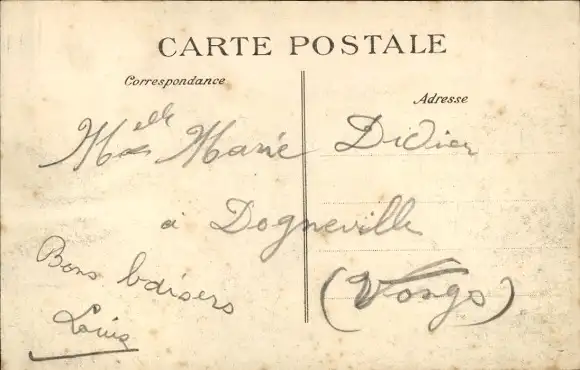 CARTE POSTALE
Correspondance
Adresse
Melle Marie Didier
à Dogneville
(Vosges)
Bons baisers
Louis